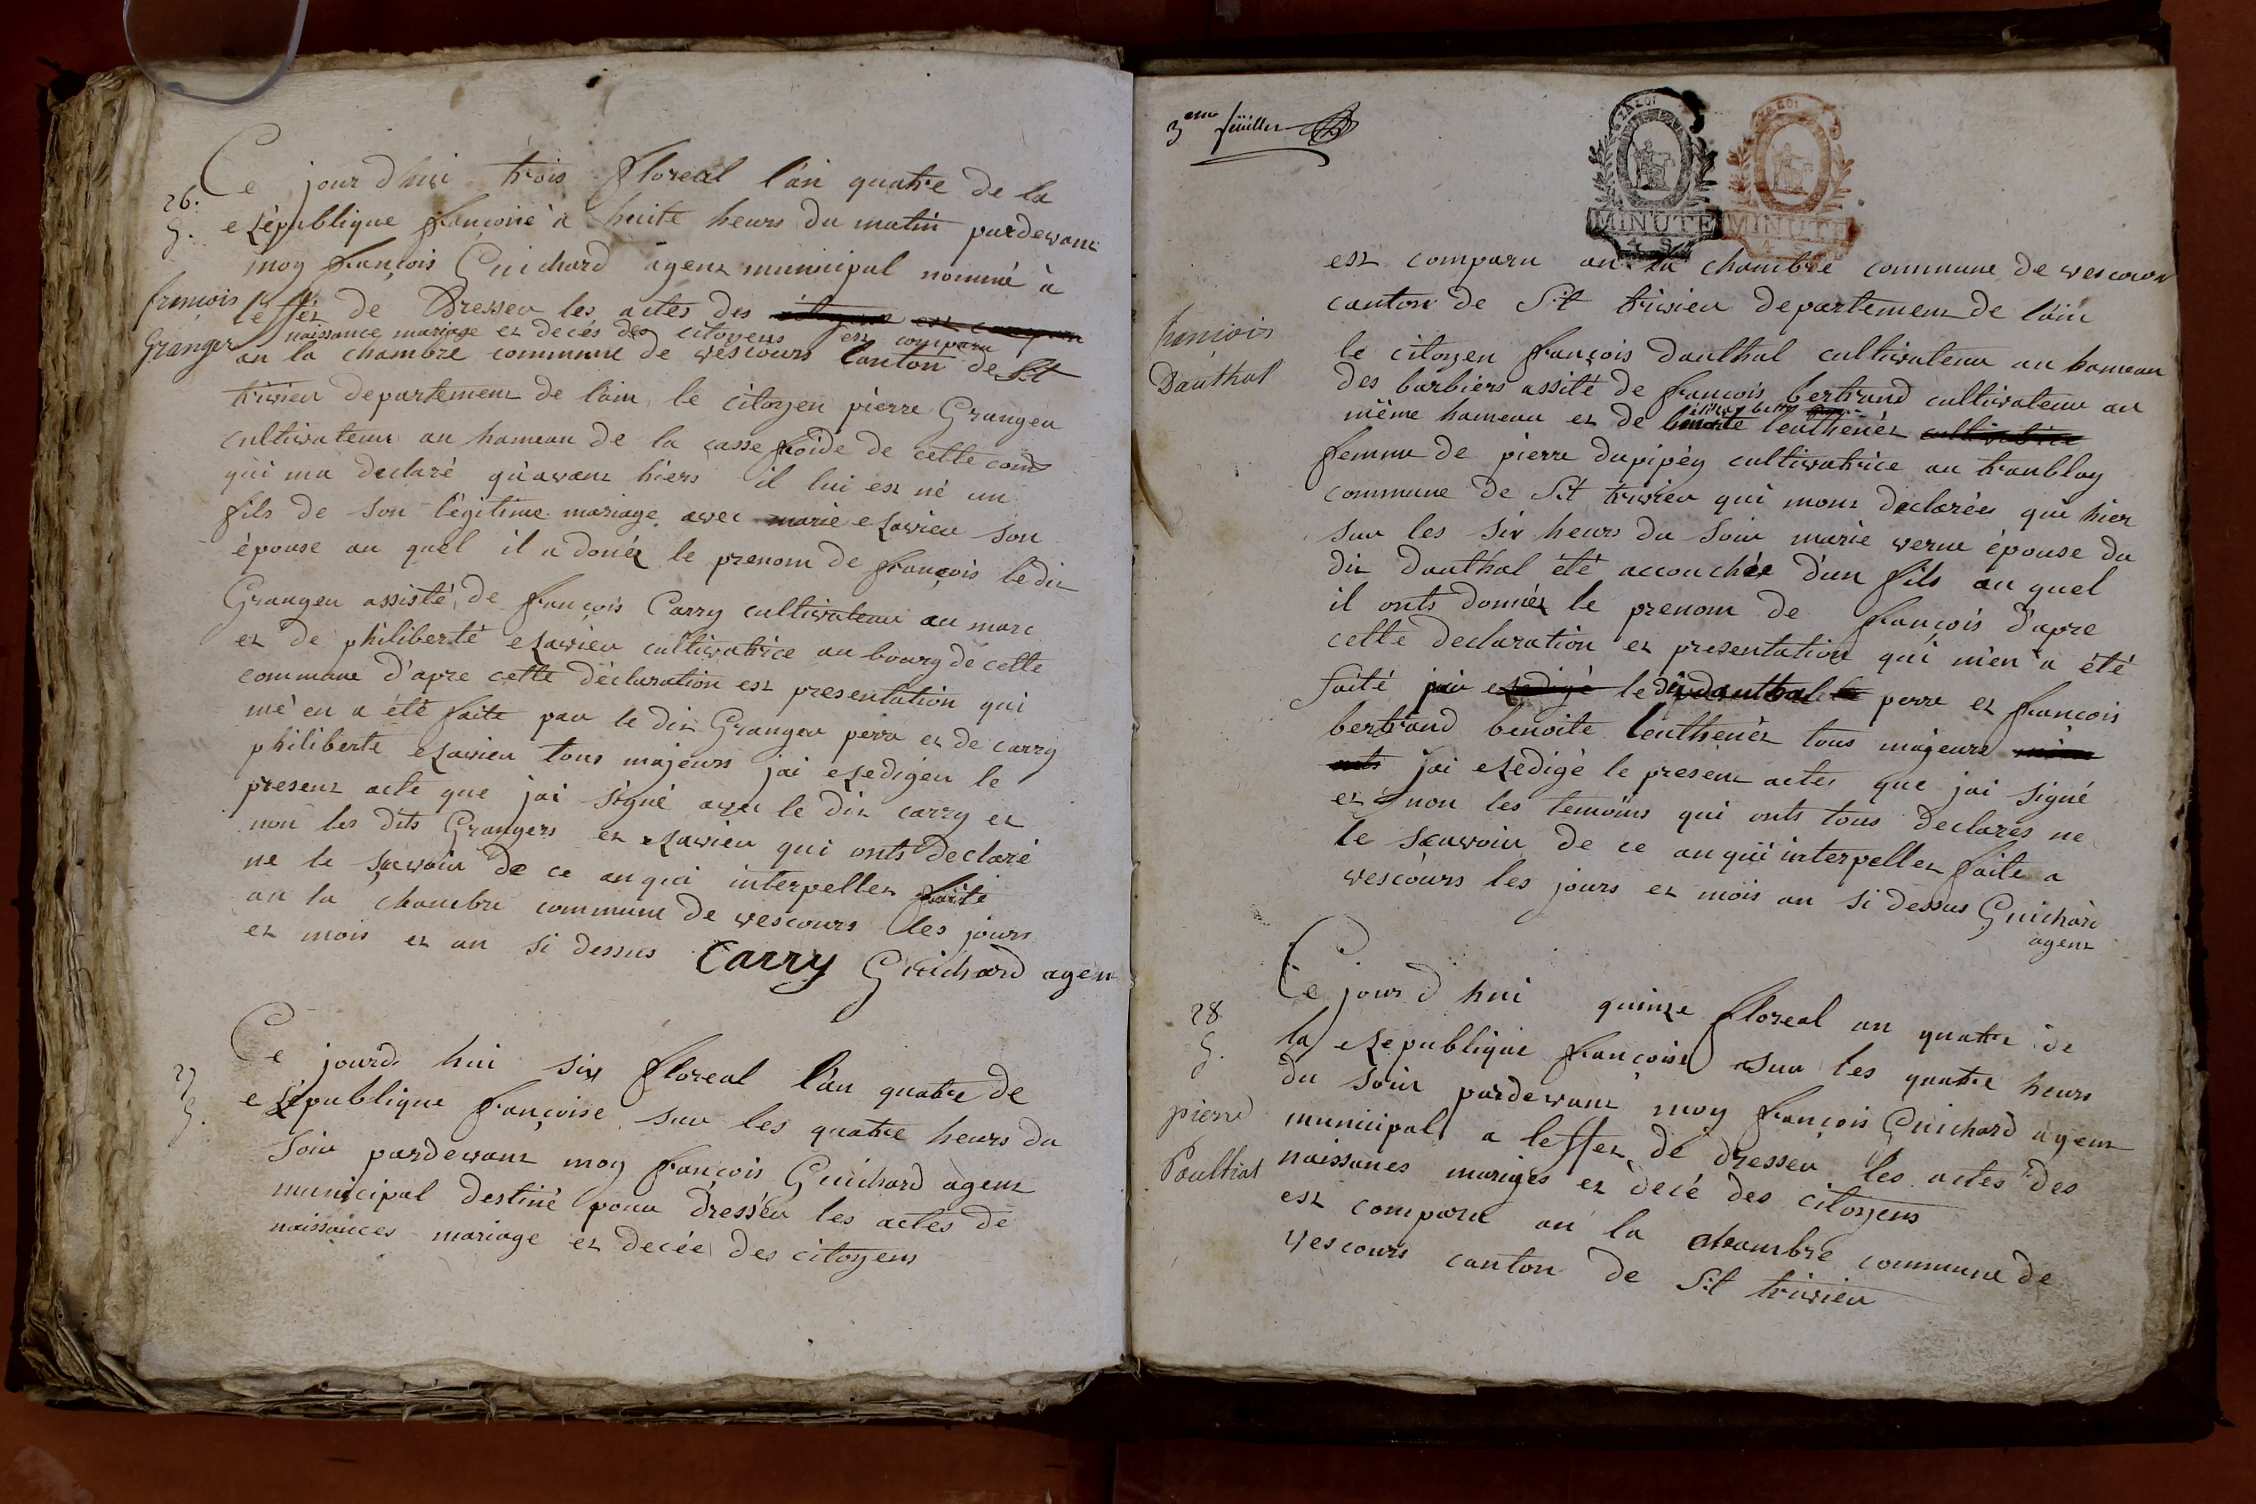 Ce jour d hui trois floreal l'an quatre de la
république francoise a huite heurs du matin pardevant
moy françois Guichard agent municipal nommé à
l'effet de Dresser les actes des
naissance mariage et decés des citoyens est comparu
an la chambre commune de vescours Canton de S.t
trivier departement de l'ain le citoyen pierre Granger
cultivateur au hameau de la casse froide de cette com
qui ma declaré qu'avant hiers il lui est né un
fils de son légitime mariage avec marie ravier son
épouse au quel il a donéz le prenom de françois le dit
Granger assisté de françois Carry cultivateur au marc
et de philiberté ravier cultivatrice au bourg de cette
commune d'apre cette déclaration est presentation qui
mé en a été faite par le dit Granger perre et de carry
philiberte ravier tous majeurs jai redigér le
present acte que jai signé avec le dit carry et
non les dits Grangers et ravier qui onts declaré
ne le savoir de ce an qui interpellez faite
an la chambre commune de vescours les jours
et mois et an si dessus Carry Guichard agen
26.
françois
Granger
Ce jourd hui six floreal l'an quatre de
république françoise sur les quatre heurs du
soir pardevant moy françois Guichard agent
municipal destiné pour dresser les actes de
naissances mariage et decée des citoyens
27
3eme füillet
LA LOI
LA LOI
MINUTE
MINUTE
4 S
4 S
est comparu an la chambre commune de vescour
canton de S.t trivier departement de l'ain
le citoyen françois dauthal cultivateur au hameau
des barbiers assité de françois bertrand cultivateur au
même hameau et de benoite leuthenér cultivatrice
femme de pierre dupipéy cultivatrice au tranblay
commune de S.t trivier qui mont declarées que hier
sur les six heurs du soir marie verne épouse du
dit dauthal été accouchée d'un fils au quel
il onts donnéz le prenom de françois d'apre
cette declaration et presentation qui m'en a été
faité jai redigé le dit dauthal perre et françois
bertrand benoite leuthenér tous majeurs
jai redigé le present actes que jai signé
et non les temoins qui onts tous declares ne
le scavoir de ce an qui interpellez faite a
vescours les jours et mois an si dessus Guichard
agent
françois
Dauthal
Ce jour d hui quinze floreal an quatre de
la republique françoise sur les quatre heurs
du soir pardevant moy françois Guichard agent
municipal a leffet de dresser les actes des
naissances mariges et décé des citoyens
est comparu an la chambre commune de
vescours canton de S.t trivier
28
pierre
Paulhat